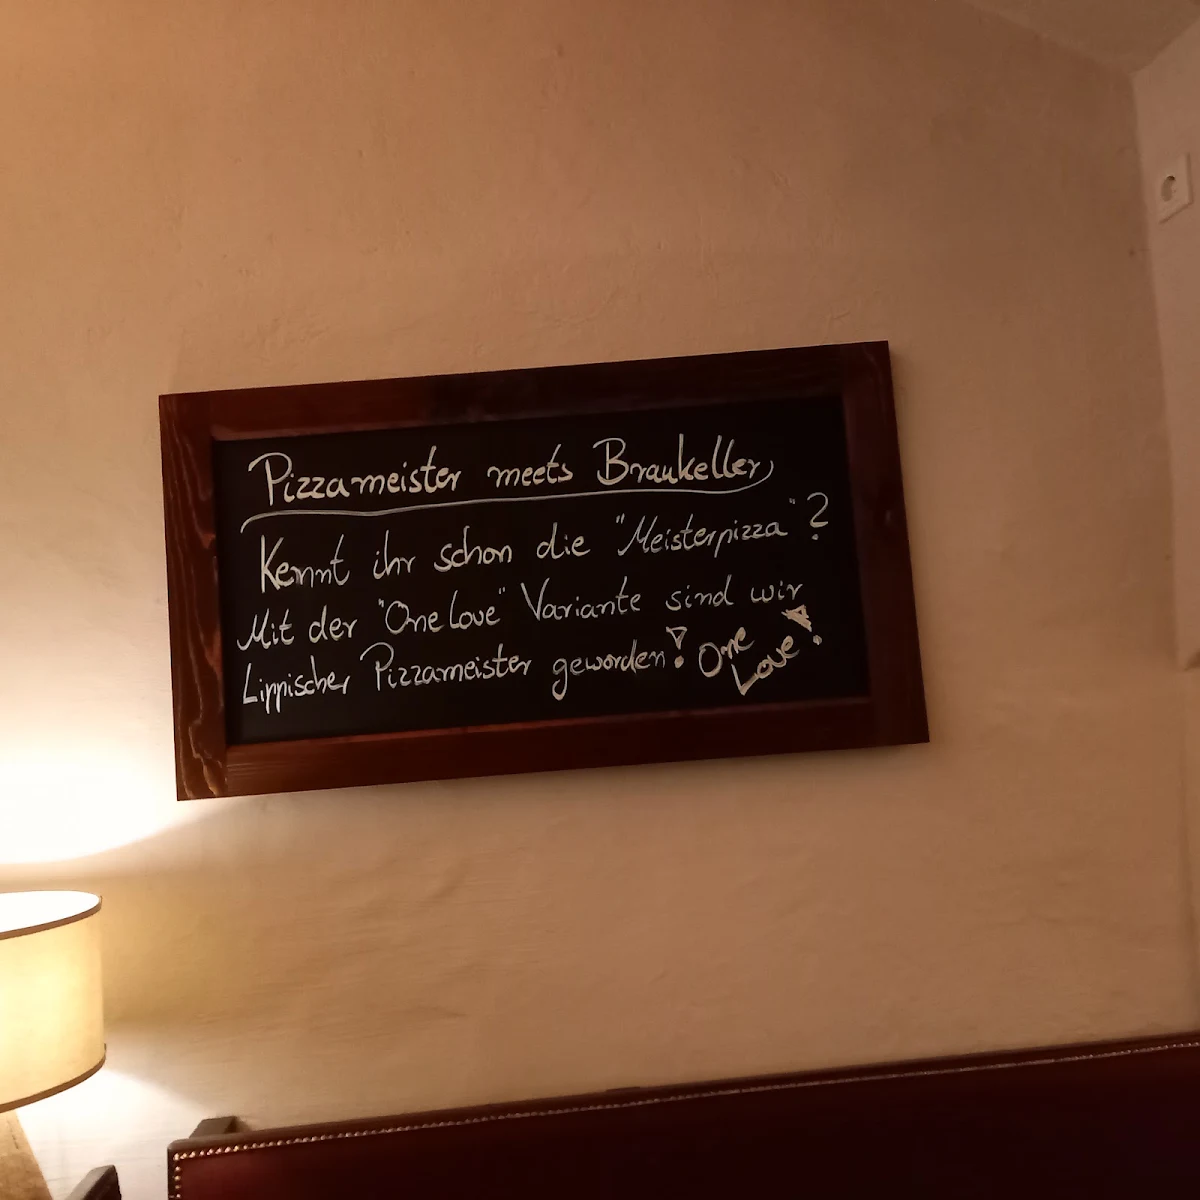 Pizzameister meets Braukeller
Kennt ihr schon die "Meisterpizza"?
Mit der "One Love" Variante sind wir
Lippischer Pizzameister geworden! One
Love!